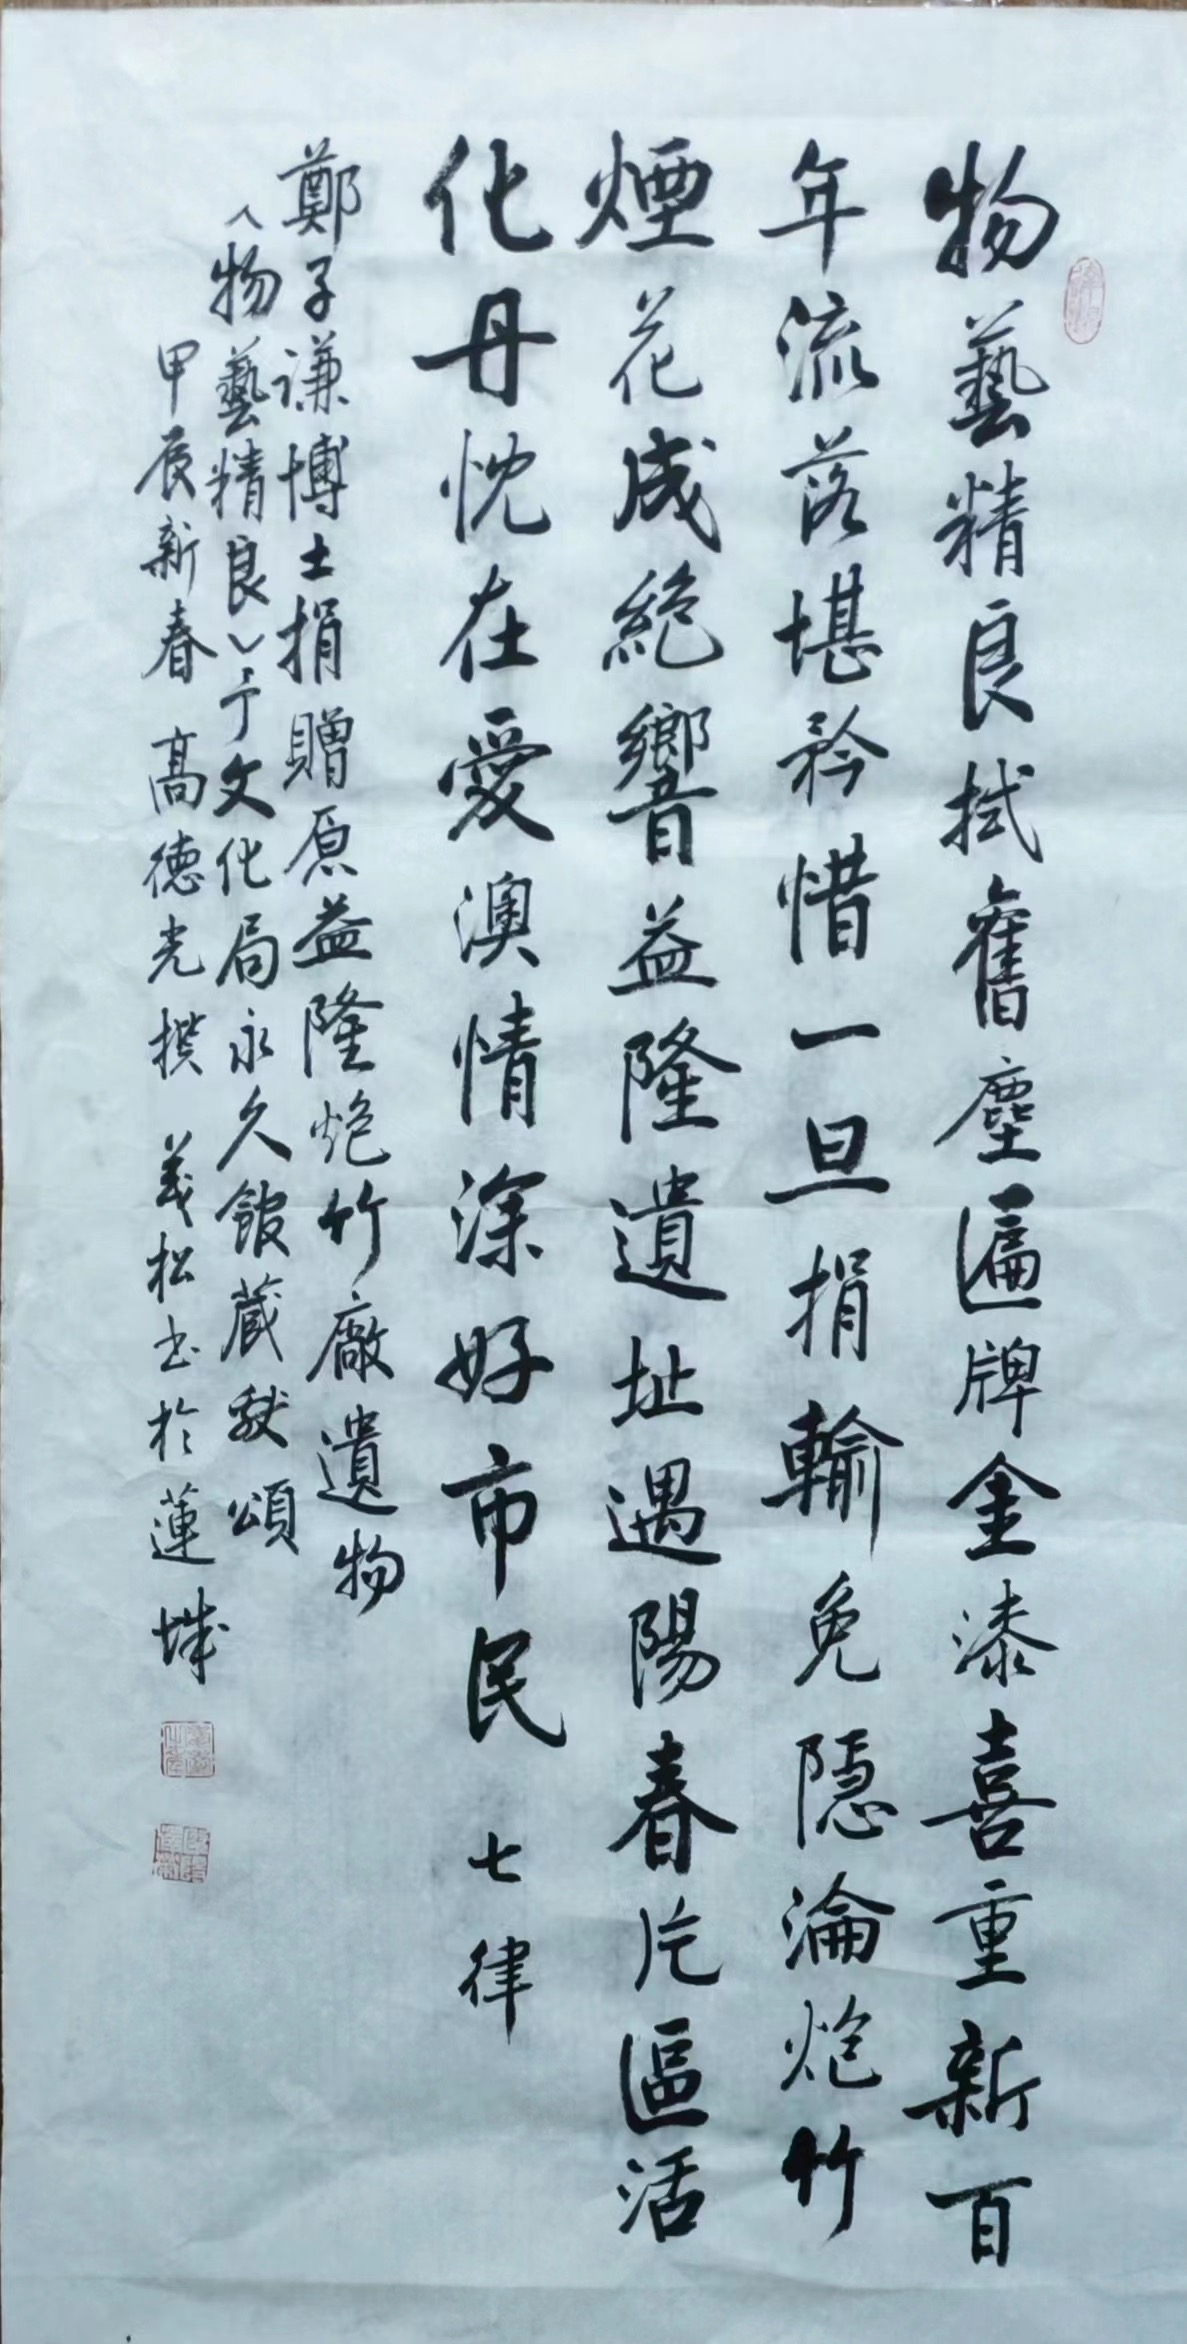 物藝精良拭舊塵匾牌金漆喜重新百
年流落堪矜惜一旦捐輸免隱淪炮竹
煙花成絕響益隆遺址遇陽春片區活
化丹忱在愛澳情深好市民 七律
鄭子謙博士捐贈原益隆炮竹廠遺物
〈物藝精良〉予文化局永久館藏獻頌
甲辰新春 高德光撰 義松书於蓮城